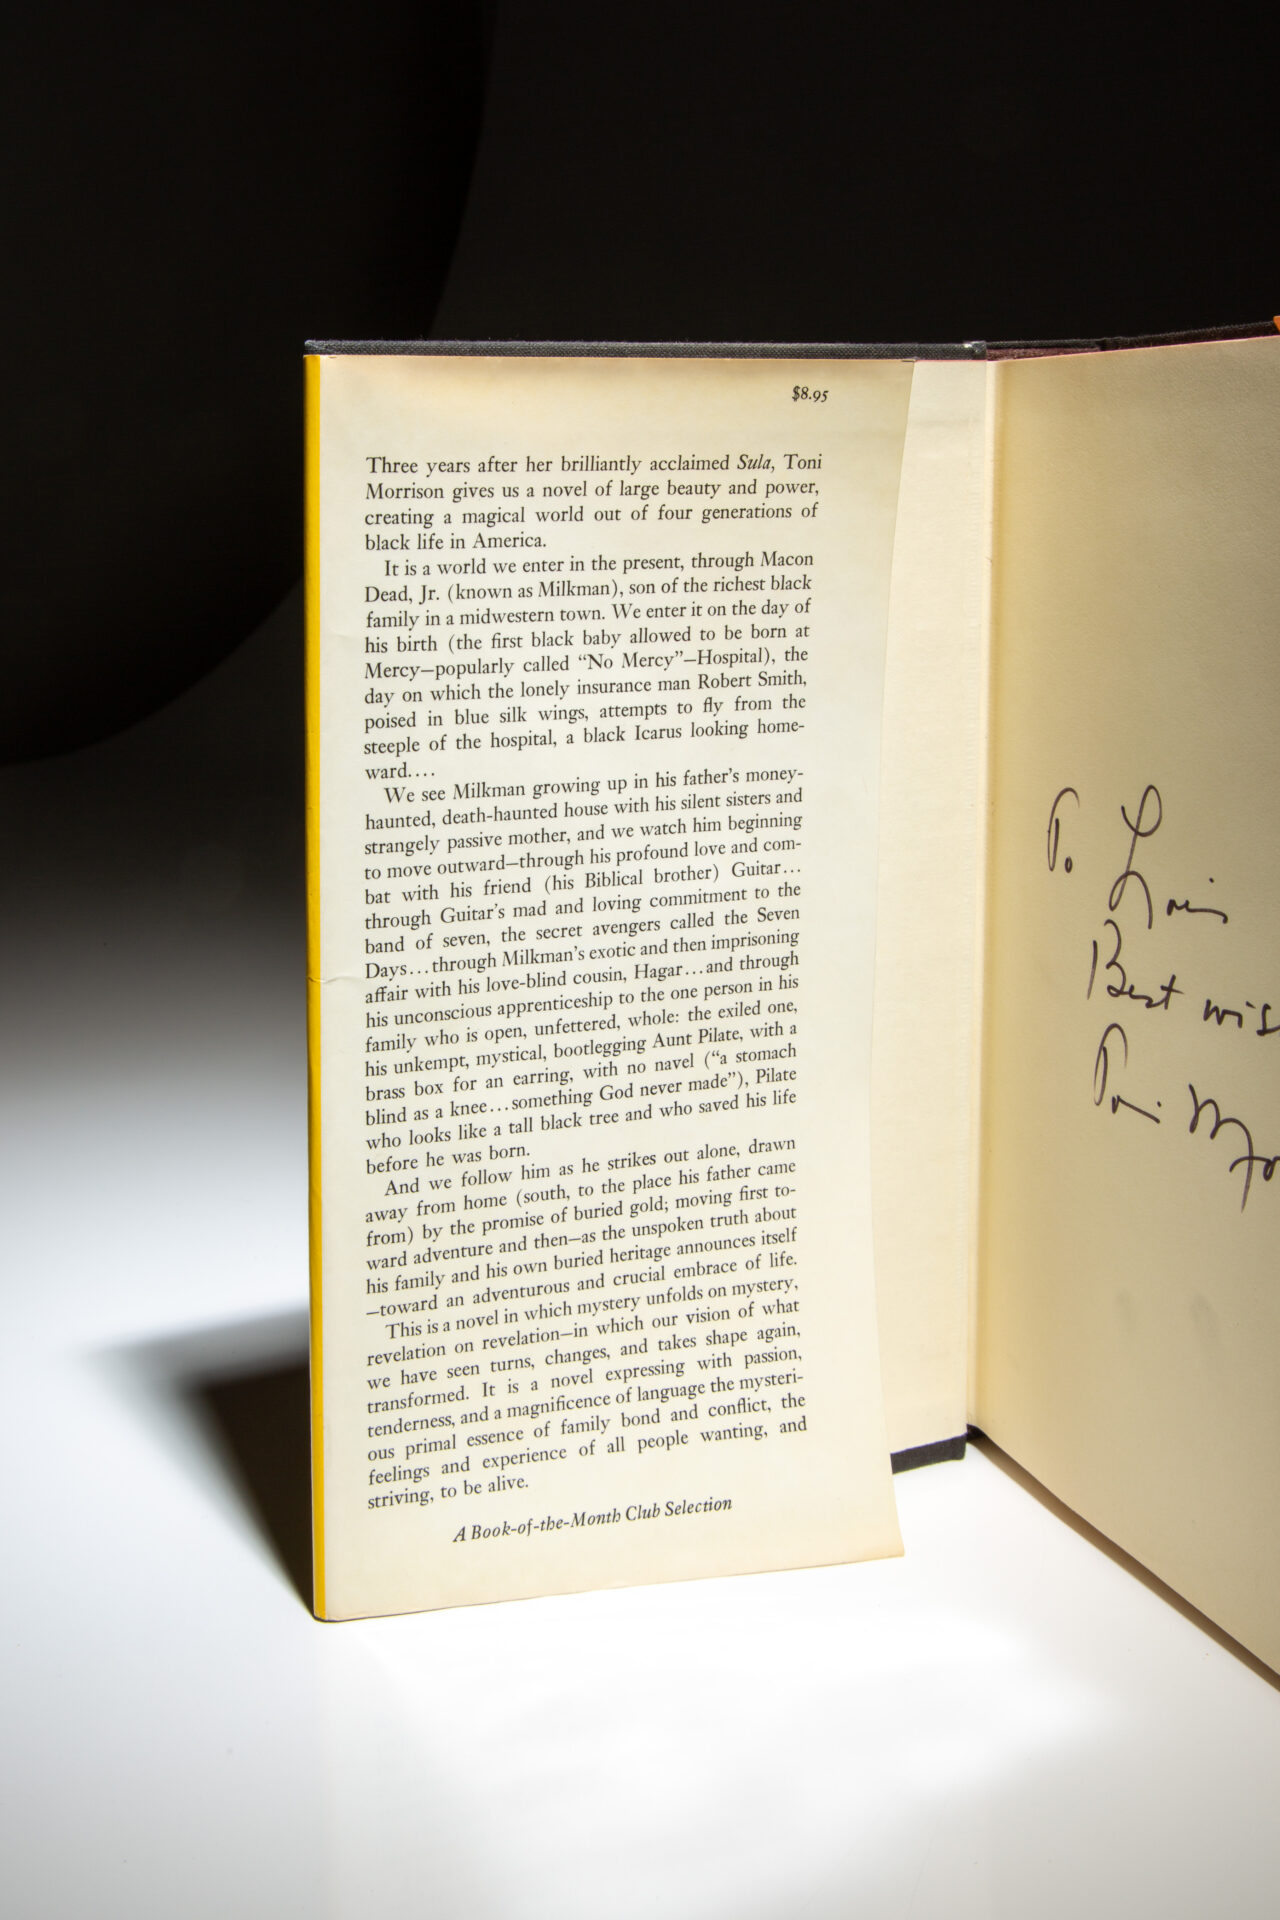 $8.95
Three years after her brilliantly acclaimed Sula, Toni
Morrison gives us a novel of large beauty and power,
creating a magical world out of four generations of
black life in America.
It is a world we enter in the present, through Macon
Dead, Jr. (known as Milkman), son of the richest black
family in a midwestern town. We enter it on the day of
his birth (the first black baby allowed to be born at
Mercy—popularly called “No Mercy”—Hospital), the
day on which the lonely insurance man Robert Smith,
poised in blue silk wings, attempts to fly from the
steeple of the hospital, a black Icarus looking home-
ward....
We see Milkman growing up in his father's money-
haunted, death-haunted house with his silent sisters and
strangely passive mother, and we watch him beginning
to move outward—through his profound love and com-
bat with his friend (his Biblical brother) Guitar...
through Guitar's mad and loving commitment to the
band of seven, the secret avengers called the Seven
Days...through Milkman's exotic and then imprisoning
affair with his love-blind cousin, Hagar...and through
his unconscious apprenticeship to the one person in his
family who is open, unfettered, whole: the exiled one,
his unkempt, mystical, bootlegging Aunt Pilate, with a
brass box for an earring, with no navel (“a stomach
blind as a knee...something God never made”), Pilate
who looks like a tall black tree and who saved his life
before he was born.
And we follow him as he strikes out alone, drawn
away from home (south, to the place his father came
from) by the promise of buried gold; moving first to-
ward adventure and then—as the unspoken truth about
his family and his own buried heritage announces itself
—toward an adventurous and crucial embrace of life.
This is a novel in which mystery unfolds on mystery,
revelation on revelation—in which our vision of what
we have seen turns, changes, and takes shape again,
transformed. It is a novel expressing with passion,
tenderness, and a magnificence of language the mysteri-
ous primal essence of family bond and conflict, the
feelings and experience of all people wanting, and
striving, to be alive.
A Book-of-the-Month Club Selection
To Lois
Best wis
Toni Mor